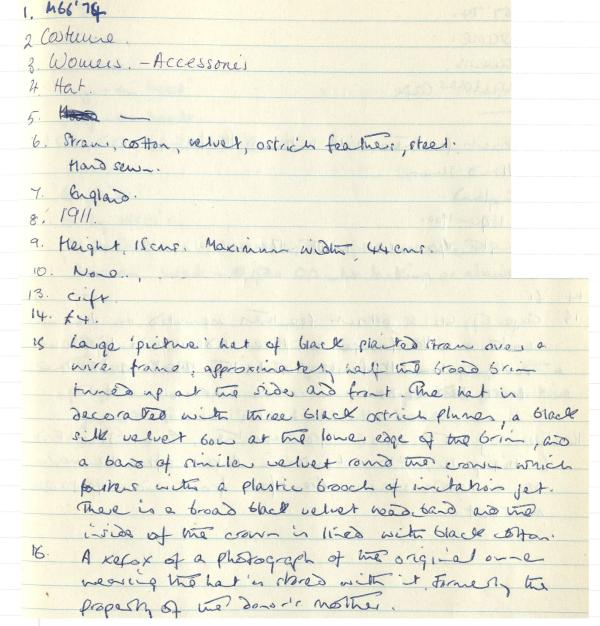 1. M66'74
2 Costume.
3. Womens. - Accessories
4. Hat.
5. —
6. Straw, cotton, velvet, ostrich feathers, steel.
Hand sewn.
7. England.
8. 1911.
9. Height, 15cms. Maximum width, 44cms.
10. None..
13. Gift.
14. £4.
15 Large 'picture' hat of black plaited straw over a
wire frame, approximately half the broad brim
turned up at the side and front. The hat is
decorated with three black ostrich plumes, a black
silk velvet bow at the lower edge of the brim, and
a band of similar velvet round the crown which
fastens with a plastic brooch of imitation jet.
There is a broad black velvet head band and the
inside of the crown is lined with black cotton.
16. A xerox of a photograph of the original owner
wearing the hat is stored with it. Formerly the
property of the donor's mother.